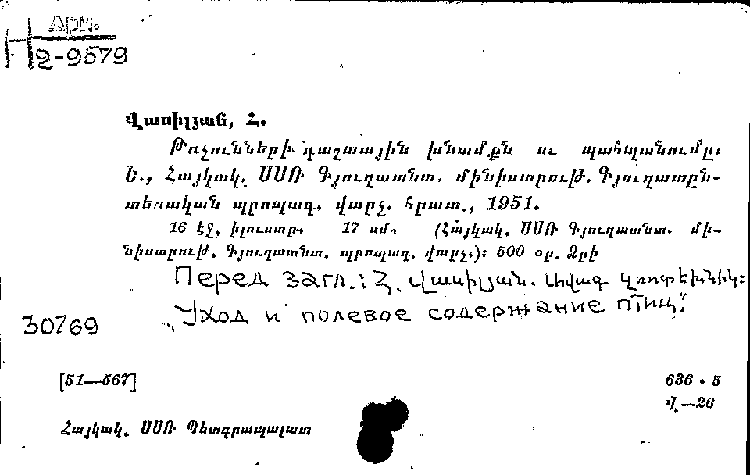 Арм.
Н 2-9579
Վասիլյան, Հ.
Թռչունների դաշտային խնամքն ու պահպանումը։
Ե., Հայկակ. ՍՍՌ Գյուղատնտ. մինիստրութ. Գյուղատըն-
տեսական պրոպագ. վարչ. հրատ., 1951.
16 էջ, իլուստր. 17 սմ. (Հայկակ. ՍՍՌ Գյուղատնտ. մի-
նիստրութ. Գյուղատնտ. պրոպագ. վարչ.)։ 500 օր. Ձրի
Перед загл.: Հ. Վասիլյան. Ավագ զոոտեխնիկ։
"Уход и полевое содержание птиц."
30769
[51—567]
636 • 5
Վ—26
Հայկակ. ՍՍՌ Պետգրապալատ